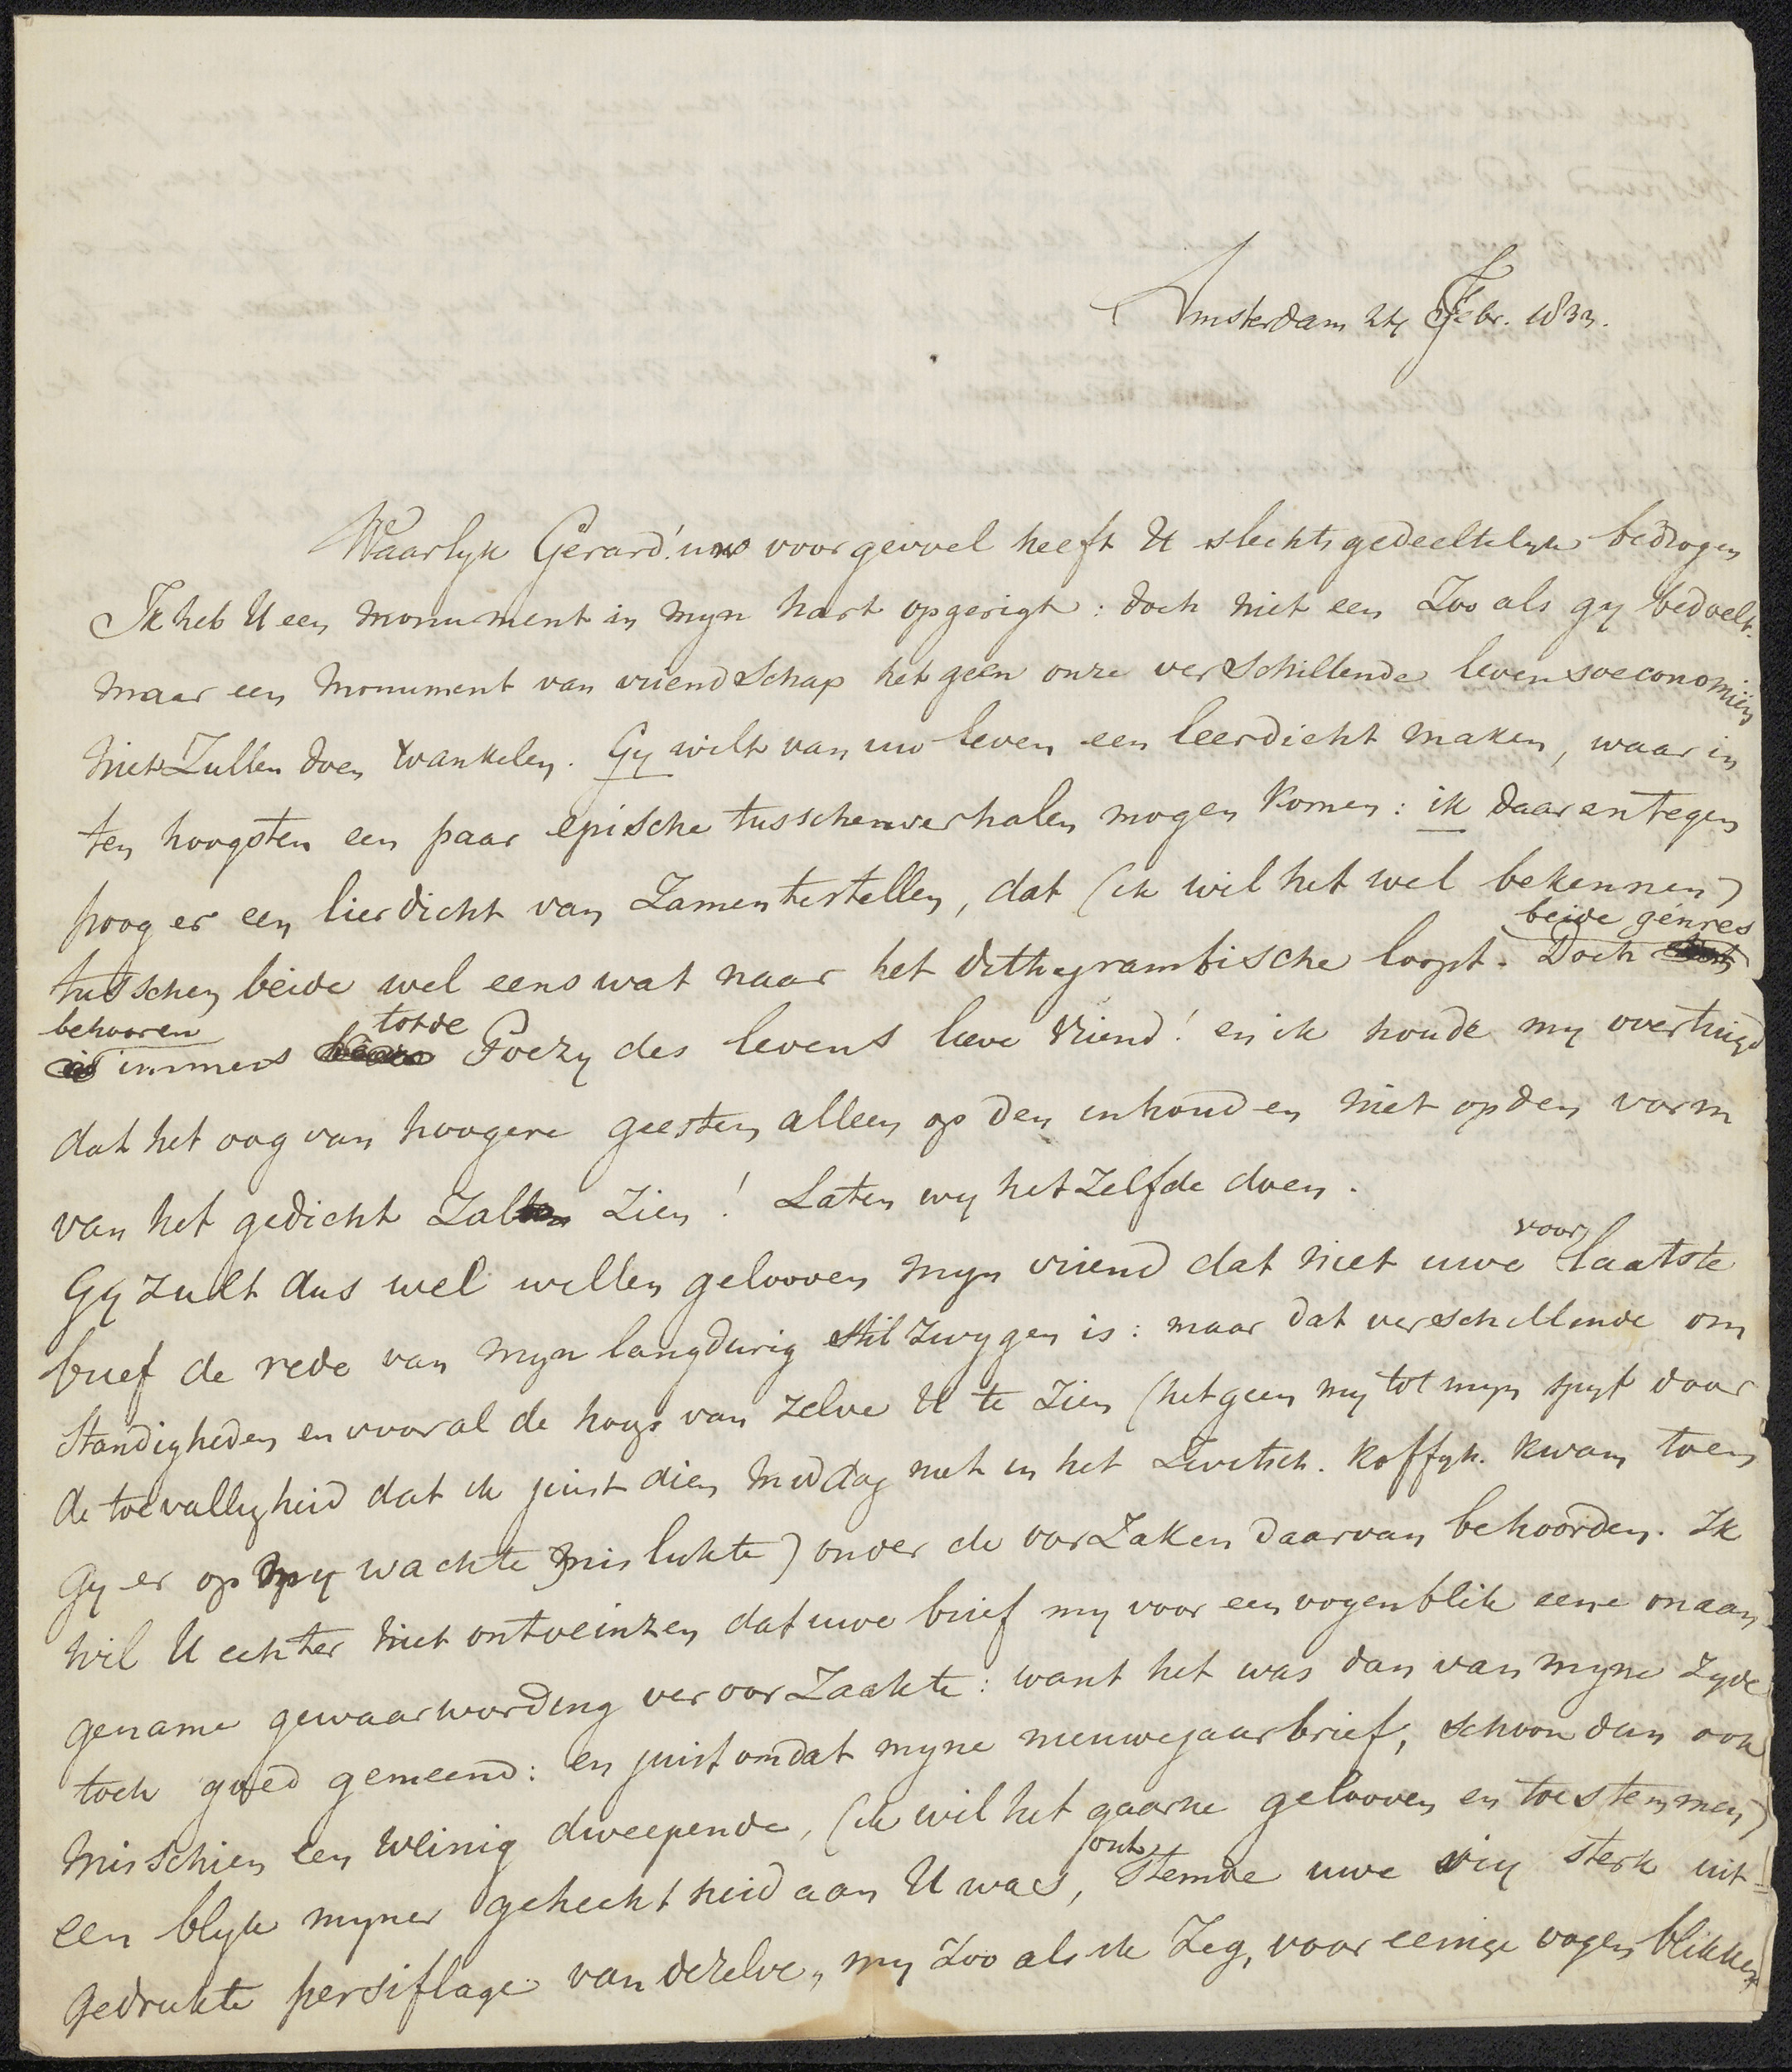 Amsterdam 24 Febr. 1833.
Waarlyk Gerard! uw voorgevoel heeft U slechts gedeeltelyk bedrogen
Ik heb U een monument in myn hart opgerigt: doch niet een Zoo als gy bedoelt.
maar een monument van vriendschap het geen onze verschillende levensoeconomiën
niet Zullen doen wankelen. Gy wilt van uw leven een leerdicht maken, waar in
ten hoogsten een paar epische tusschenverhalen mogen komen: ik daarentegen
poog er een lierdicht van Zamentestellen, dat (ik wil het wel bekennen)
tusschen beide wel eens wat naar het dithyrambische loopt. Doch beide génres
behooren immers tot de Poezy des levens lieve Vriend! en ik houde my overtuigd
dat het oog van hoogere geesten alleen op den inhoud en niet op den vorm
van het gedicht Zal Zien! Laten wy het Zelfde doen.
Gy Zult dus wel willen gelooven myn vriend dat niet uwe voorlaatste
brief de rede van myn langdurig stilzwygen is: maar dat verschillende om
standigheden en vooral de hoop van zelve U te Zien (het geen my tot myn spyt door
de toevalligheid dat ik juist dien middag niet in het Zwitsch. koffyh. kwam toen
Gy er op my wachte mislukte) onder de oorZaken daarvan behoorden. Ik
wil U echter niet ontveinzen dat uwe brief my voor een oogenblik eene onaan
gename gewaarwording veroorZaakte: want het was dan van myne Zyde
toch goed gemeend: en juist omdat myne nieuwejaarbrief, schoon dan ook
misschien een weinig dweepende, (ik wil het gaarne gelooven en toestemmen)
een blyk myner gehechtheid aan U was, ontstemde uwe vry sterk uit=
gedrukte persiflage van dezelve, my Zoo als ik Zeg, voor eenige oogenblikken